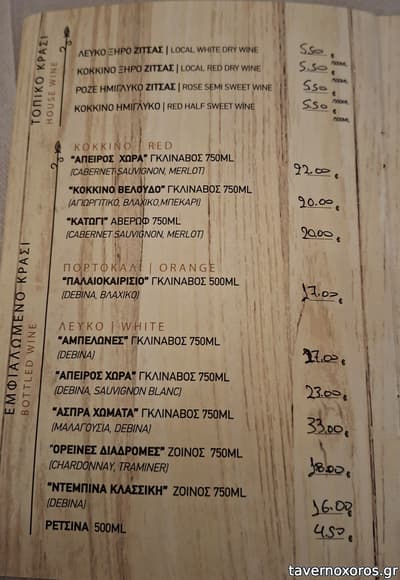 ΤΟΠΙΚΟ ΚΡΑΣΙ
HOUSE WINE
ΛΕΥΚΟ ΞΗΡΟ ΖΙΤΣΑΣ | LOCAL WHITE DRY WINE 5.50 € /500ML
ΚΟΚΚΙΝΟ ΞΗΡΟ ΖΙΤΣΑΣ | LOCAL RED DRY WINE 5.50 € /500ML
ΡΟΖΕ ΗΜΙΓΛΥΚΟ ΖΙΤΣΑΣ | ROSE SEMI SWEET WINE 5.50 € /500ML
ΚΟΚΚΙΝΟ ΗΜΙΓΛΥΚΟ | RED HALF SWEET WINE 5.50 € /500ML
ΕΜΦΙΑΛΩΜΕΝΟ ΚΡΑΣΙ
BOTTLED WINE
ΚΟΚΚΙΝΟ | RED
"ΑΠΕΙΡΟΣ ΧΩΡΑ" ΓΚΛΙΝΑΒΟΣ 750ML 22.00 €
(CABERNET SAUVIGNON, MERLOT)
"ΚΟΚΚΙΝΟ ΒΕΛΟΥΔΟ" ΓΚΛΙΝΑΒΟΣ 750ML 20.00 €
(ΑΓΙΩΡΓΙΤΙΚΟ, ΒΛΑΧΙΚΟ,ΜΠΕΚΑΡΙ)
"ΚΑΤΩΓΙ" ΑΒΕΡΩΦ 750ML 20.00 €
(CABERNET SAUVIGNON, MERLOT)
ΠΟΡΤΟΚΑΛΙ | ORANGE
"ΠΑΛΑΙΟΚΑΙΡΙΣΙΟ" ΓΚΛΙΝΑΒΟΣ 500ML 17.00 €
(DEBINA, ΒΛΑΧΙΚΟ)
ΛΕΥΚΟ | WHITE
"ΑΜΠΕΛΩΝΕΣ" ΓΚΛΙΝΑΒΟΣ 750ML 17.00 €
(DEBINA)
"ΑΠΕΙΡΟΣ ΧΩΡΑ" ΓΚΛΙΝΑΒΟΣ 750ML 23.00 €
(DEBINA, SAUVIGNON BLANC)
"ΑΣΠΡΑ ΧΩΜΑΤΑ" ΓΚΛΙΝΑΒΟΣ 750ML 33.00 €
(ΜΑΛΑΓΟΥΣΙΑ, DEBINA)
"ΟΡΕΙΝΕΣ ΔΙΑΔΡΟΜΕΣ" ΖΟΙΝΟΣ 750ML 18.00 €
(CHARDONNAY, TRAMINER)
"ΝΤΕΜΠΙΝΑ ΚΛΑΣΣΙΚΗ" ΖΟΙΝΟΣ 750ML 16.00 €
(DEBINA)
ΡΕΤΣΙΝΑ 500ML 4.50 €
tavernoxoros.gr